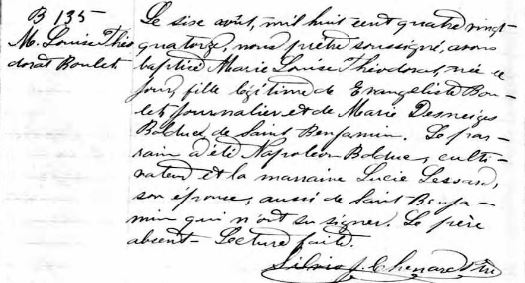 B 135
M. Louise Théo
dorat Boulet
Le six août, mil huit cent quatre vingt
quatorze, nous prêtre soussigné, avons
baptisé Marie Louise Théodorat, née ce
jour, fille légitime de Evangeliste Bou-
let, journalier et de Marie Desneiges
Bolduc, de Saint Benjamin. Le par-
rain a été Napoléon Bolduc, culti-
vateur et la marraine Lucie Lessard,
son épouse, aussi de Saint Benja-
min qui n'ont su signer. Le père
absent - Lecture faite.
J. Chenard Ptre